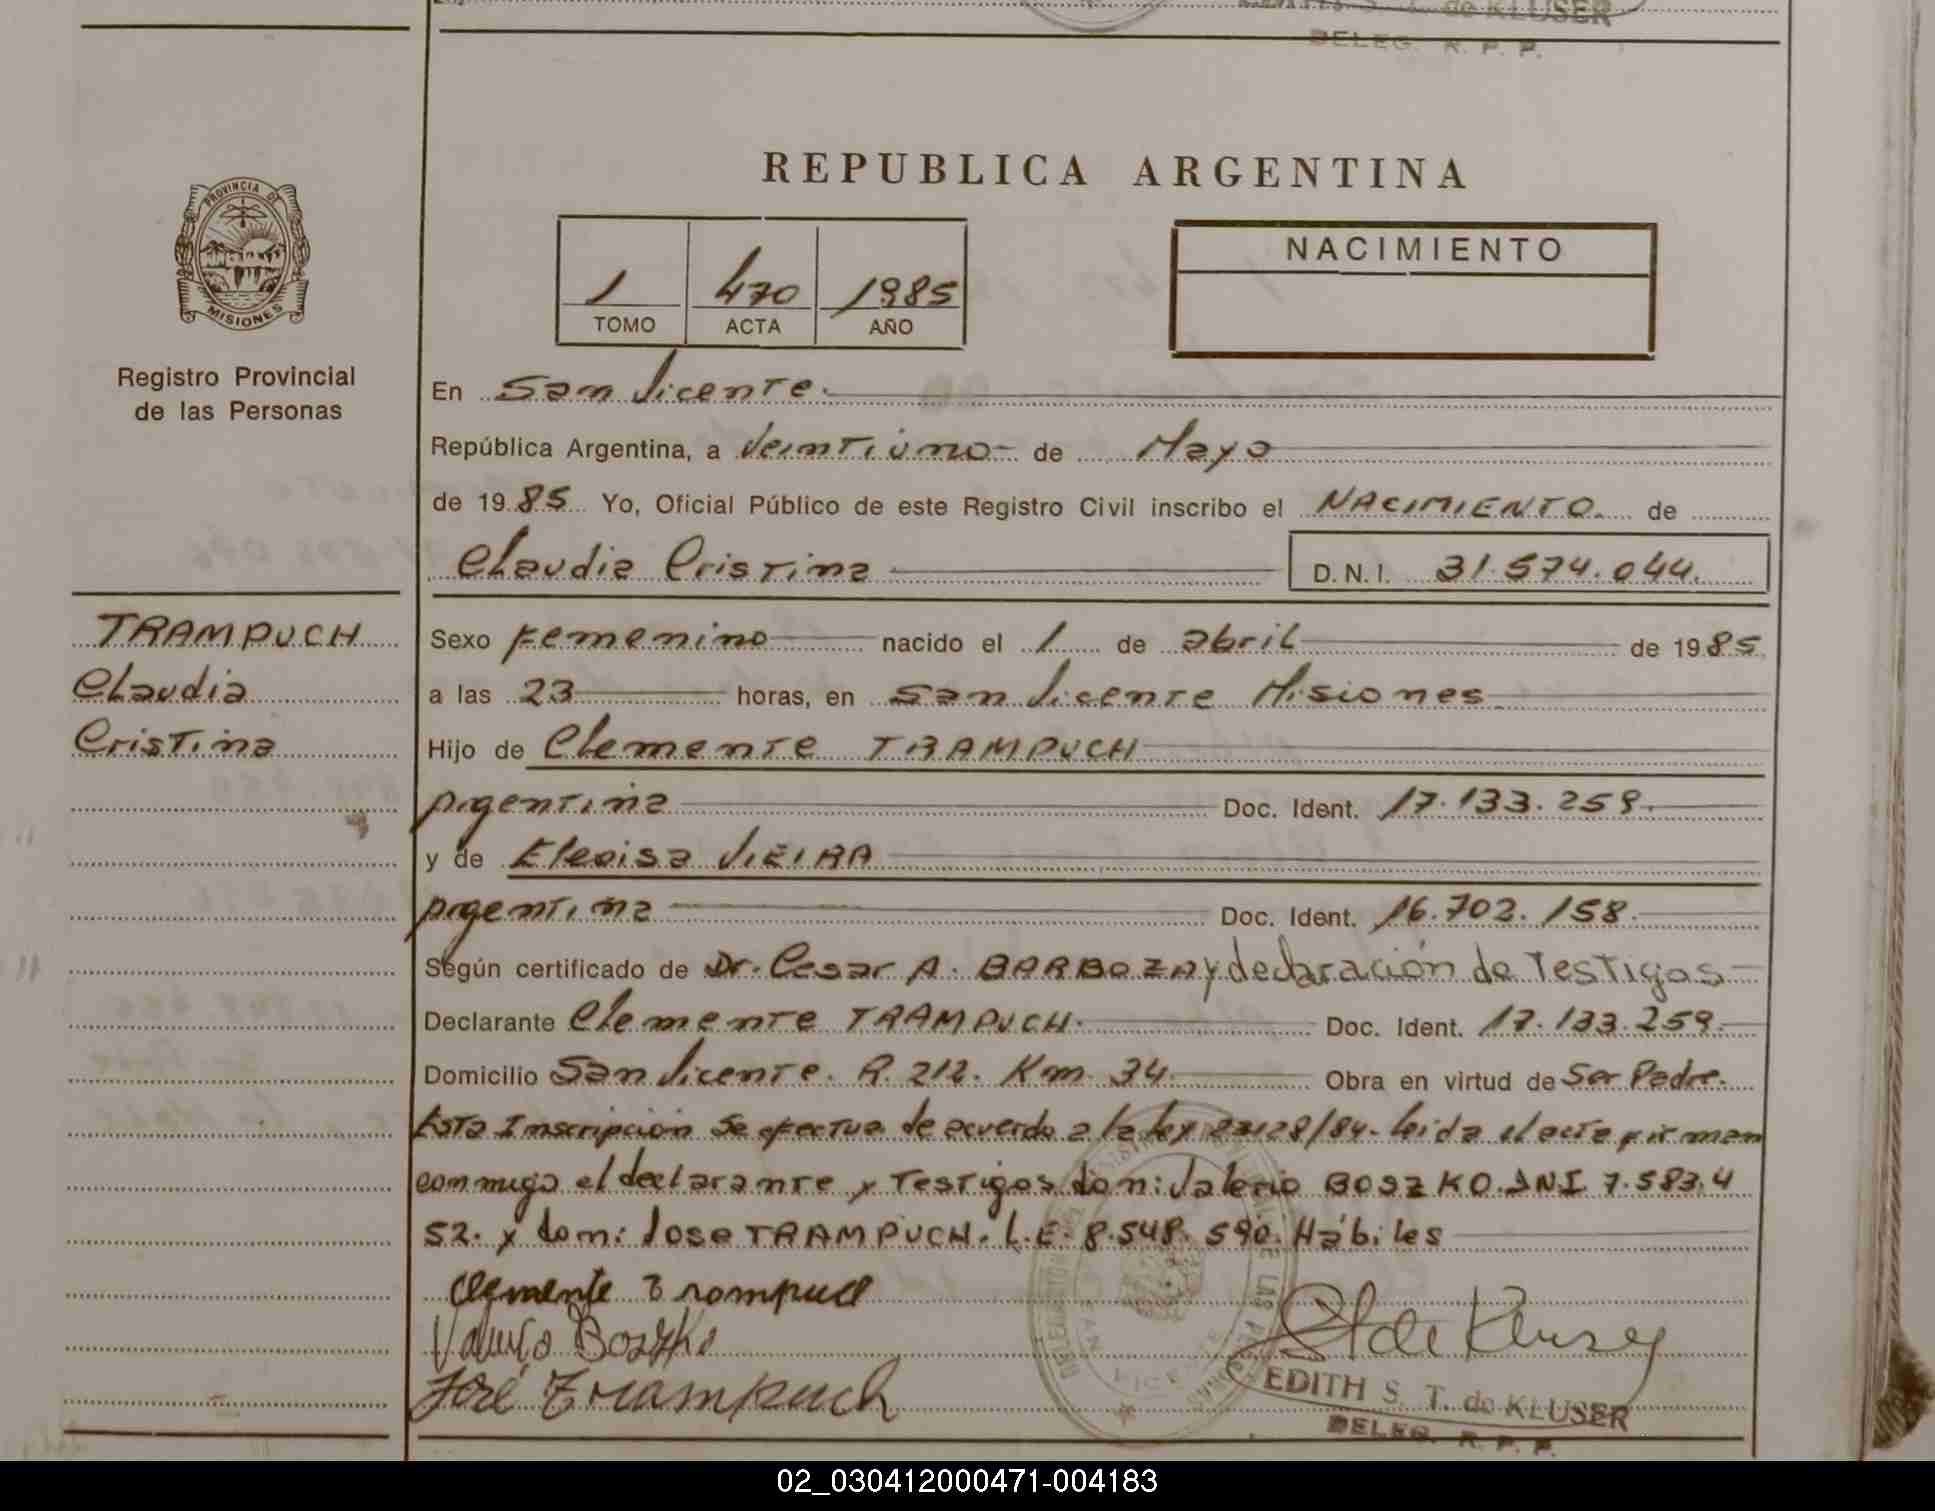 de KLUSER
DELEG. R. P. P.
PROVINCIA DE
MISIONES
Registro Provincial
de las Personas
REPUBLICA ARGENTINA
1 470 1985
TOMO ACTA AÑO
NACIMIENTO
En San Vicente.
República Argentina, a Veintiuno de Mayo
de 1985 Yo, Oficial Público de este Registro Civil inscribo el NACIMIENTO. de
Claudia Cristina D.N.I. 31.574.044.
TRAMPUCH
Claudia
Cristina
Sexo Femenino nacido el 1 de abril de 1985
a las 23 horas, en San Vicente Misiones
Hijo de Clemente TRAMPUCH
Argentina Doc. Ident. 17.133.259.
y de Eleoisa VIEIRA
Argentina Doc. Ident. 16.702.158.
Según certificado de Dr. Cesar A. BARBOZA y declaración de Testigos
Declarante Clemente TRAMPUCH. Doc. Ident. 17.133.259.
Domicilio San Vicente. R. 212. Km 34 Obra en virtud de Ser Padre.
Esta Inscripción se efectua de acuerdo a la ley 23128/84. leida el acta firman
conmigo el declarante y Testigos don: Valerio BOSZKO. DNI 7.583.4
52. y don: Jose TRAMPUCH. L.E. 8.548.590. Hábiles
Clemente Trompuch
Valerio Boszko
José Trampuch
EDITH S. T. de KLUSER
DELEG. R. P. P.
02_030412000471-004183